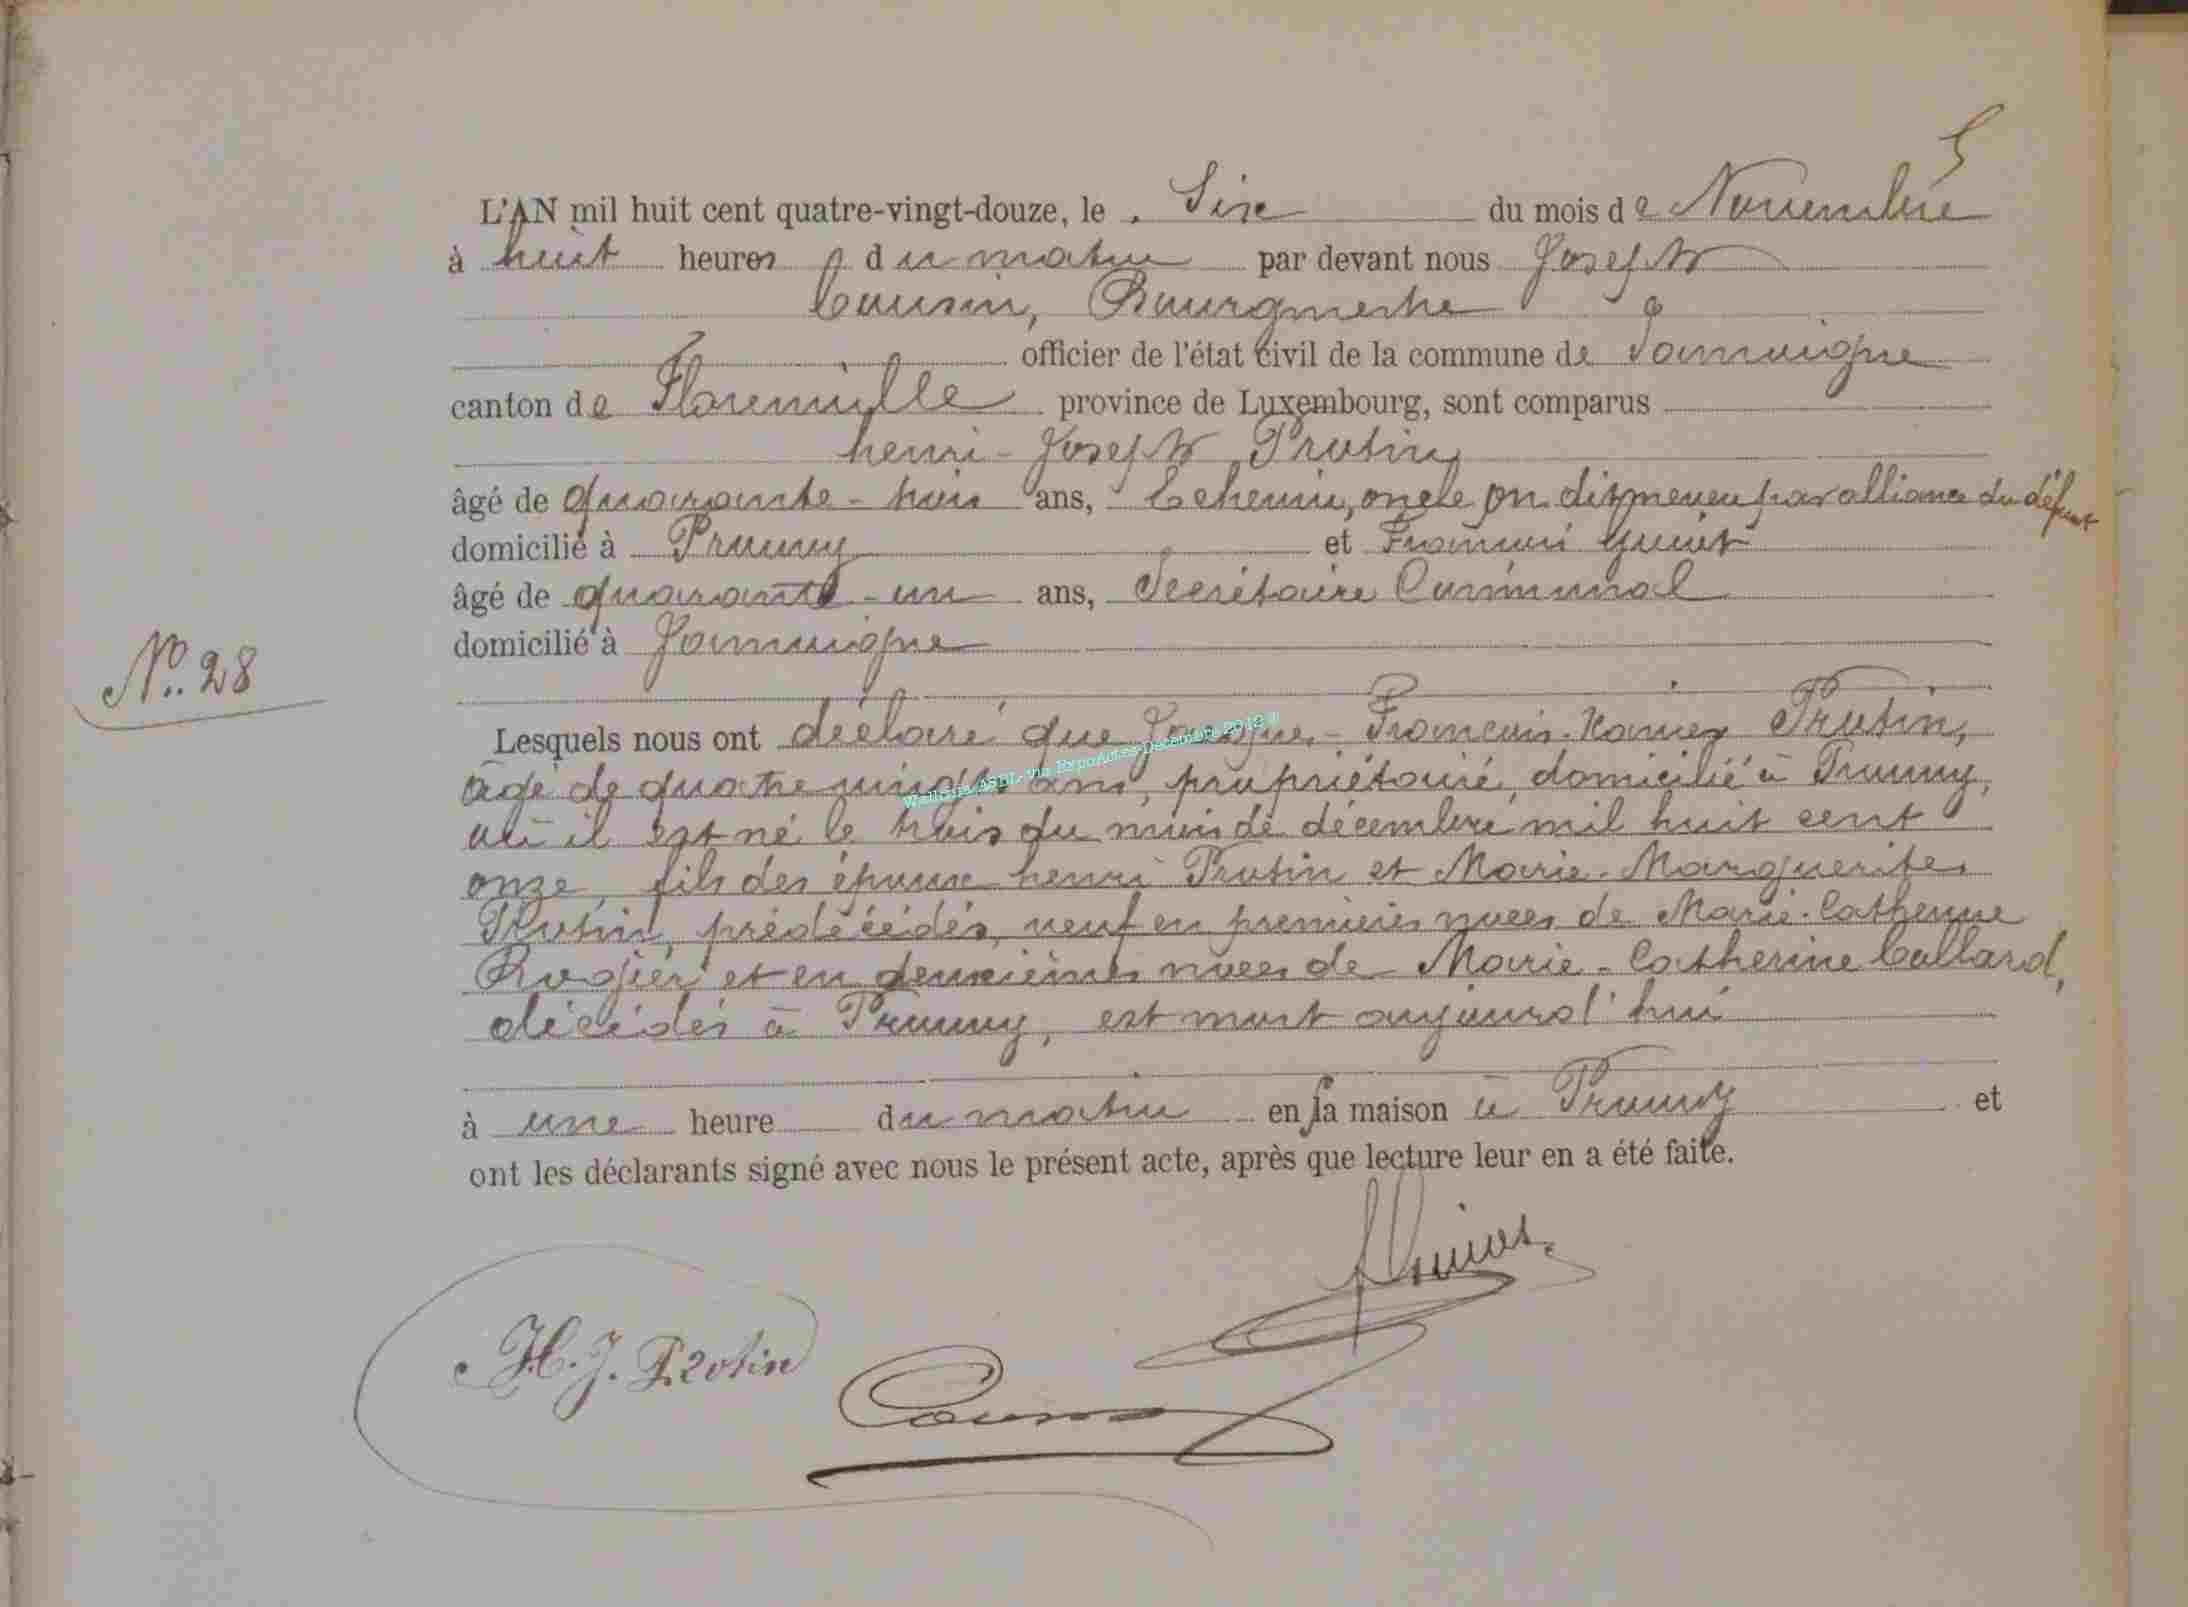 L'AN mil huit cent quatre-vingt-douze, le Six du mois de Novembre
à huit heures du matin par devant nous Joseph
Cousin, Bourgmestre
officier de l'état civil de la commune de Jamoigne
canton de Florenville province de Luxembourg, sont comparus
henri-Joseph Protin
âgé de quarante-trois ans, neveu par alliance du défunt
domicilié à Prouvy et François Guiot
âgé de quarante-un ans, Secrétaire Communal
domicilié à Jamoigne
N°. 28
Lesquels nous ont déclaré que Jacques-François-Xavier Protin,
âgé de quatre vingts ans, propriétaire, domicilié à Prouvy,
où il est né le trois du mois de décembre mil huit cent
onze, fils des époux henri Protin et Marie-Marguerite
Protin, prédécédés, veuf en premières noces de Marie-Catherine
Rogier et en deuxièmes noces de Marie-Catherine Collard,
décédés à Prouvy, est mort aujourd'hui
à une heure du matin en sa maison à Prouvy et
ont les déclarants signé avec nous le présent acte, après que lecture leur en a été faite.
H. J. Protin
Cousin
Wallonia ASBL via ExpoActes-Décembre 2012 ©